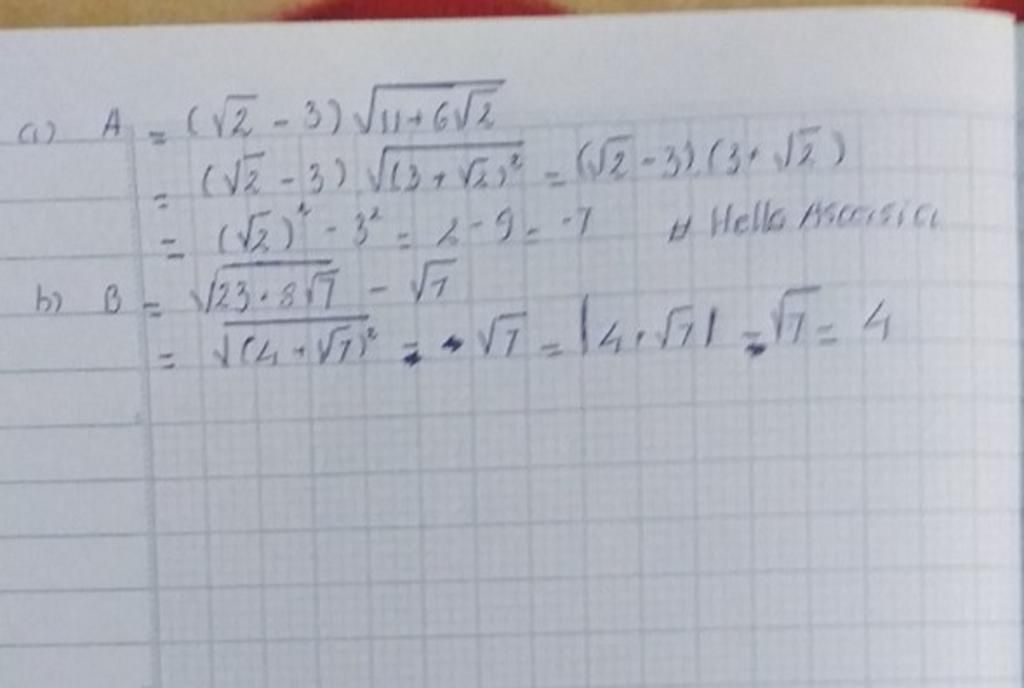 a) A = (√2 - 3) √(11 + 6√2)
= (√2 - 3) √((3 + √2)²) = (√2 - 3) (3 + √2)
= (√2)² - 3² = 2 - 9 = -7 # Hello
b) B = √(23 + 8√7) - √7
= √((4 + √7)²) - √7 = |4 + √7| - √7 = 4